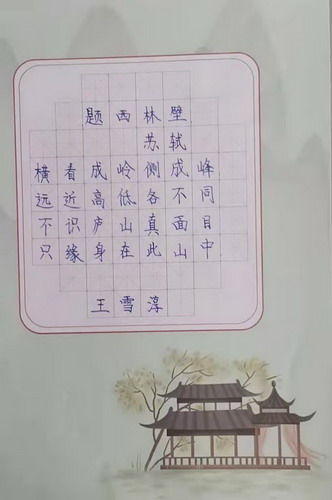 题西林壁
苏轼
横看成岭侧成峰
远近高低各不同
不识庐山真面目
只缘身在此山中
王雪淳